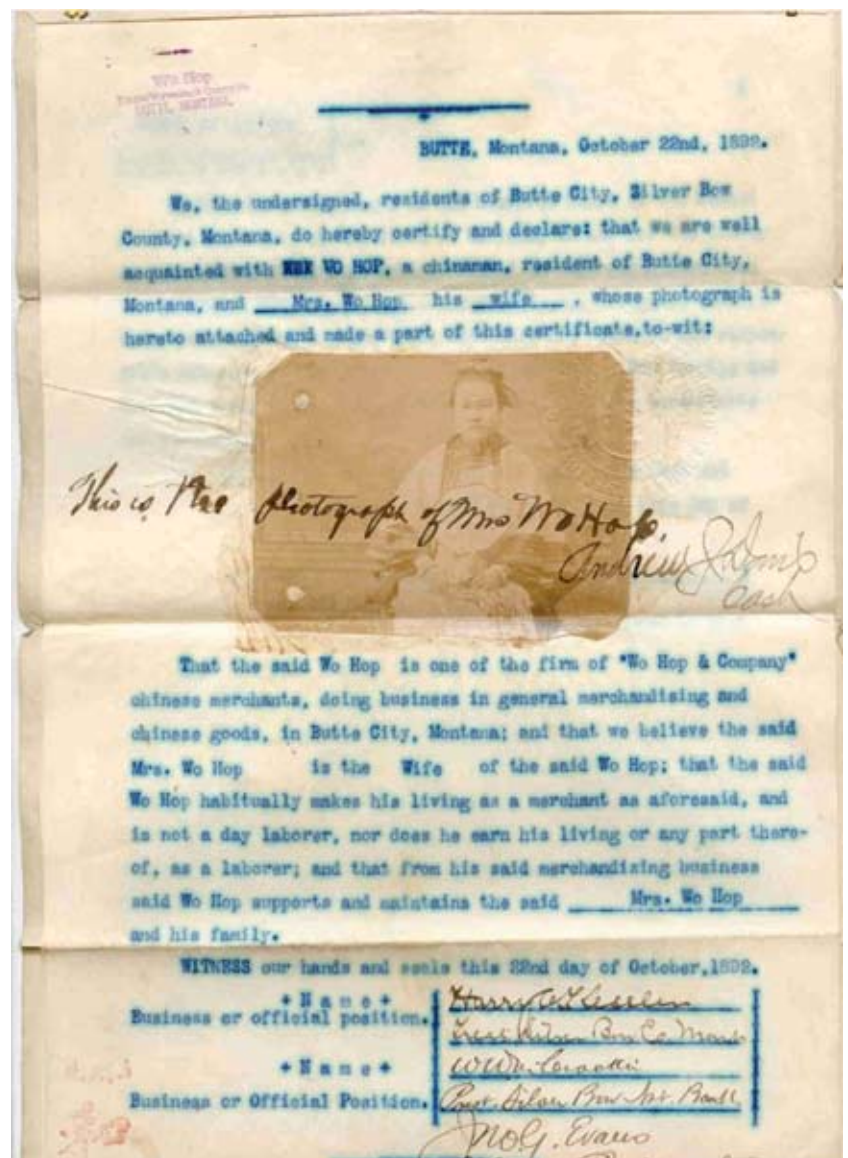 Wo Hop
BUTTE, MONTANA.
BUTTE, Montana, October 22nd, 1892.
We, the undersigned, residents of Butte City, Silver Bow
County, Montana, do hereby certify and declare: that we are well
acquainted with WO HOP, a chinaman, resident of Butte City,
Montana, and Mrs. Wo Hop his wife , whose photograph is
hereto attached and made a part of this certificate,to-wit:
This is the photograph of Mrs Wo Hop.
Andrew J Davis
Cash
That the said Wo Hop is one of the firm of "Wo Hop & Company"
chinese merchants, doing business in general merchandising and
chinese goods, in Butte City, Montana; and that we believe the said
Mrs. Wo Hop is the Wife of the said Wo Hop; that the said
Wo Hop habitually makes his living as a merchant as aforesaid, and
is not a day laborer, nor does he earn his living or any part there-
of, as a laborer; and that from his said merchandizing business
said Wo Hop supports and maintains the said Mrs. Wo Hop
and his family.
WITNESS our hands and seals this 22nd day of October,1892.
+ N a m e +
Harry C Kessler
Business or official position.
Treas Silver Bow Co Mont
+ N a m e +
Business or Official Position.
Prest. Silver Bow Nat. Bank
Jno G. Evans